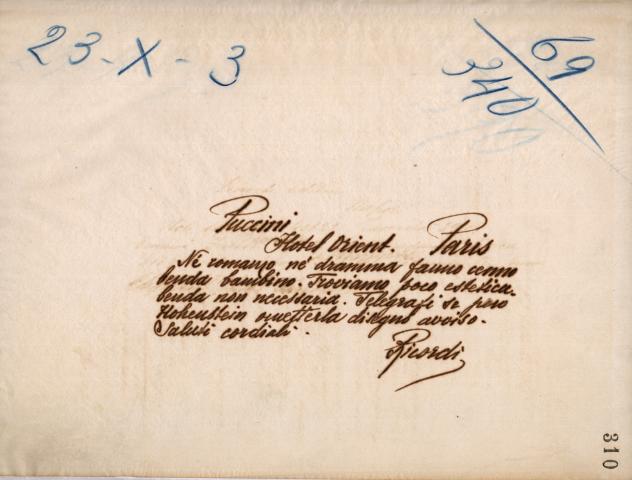 23-X-3
69
340
Puccini
Hotel Orient. Paris
Nè romanzo, nè dramma fanno cenno
benda bambino. Troviamo poco estetica.
benda non necessaria. Telegrafi se può
Hohenstein ometterla disegno avviso.
Saluti cordiali.
Ricordi
310